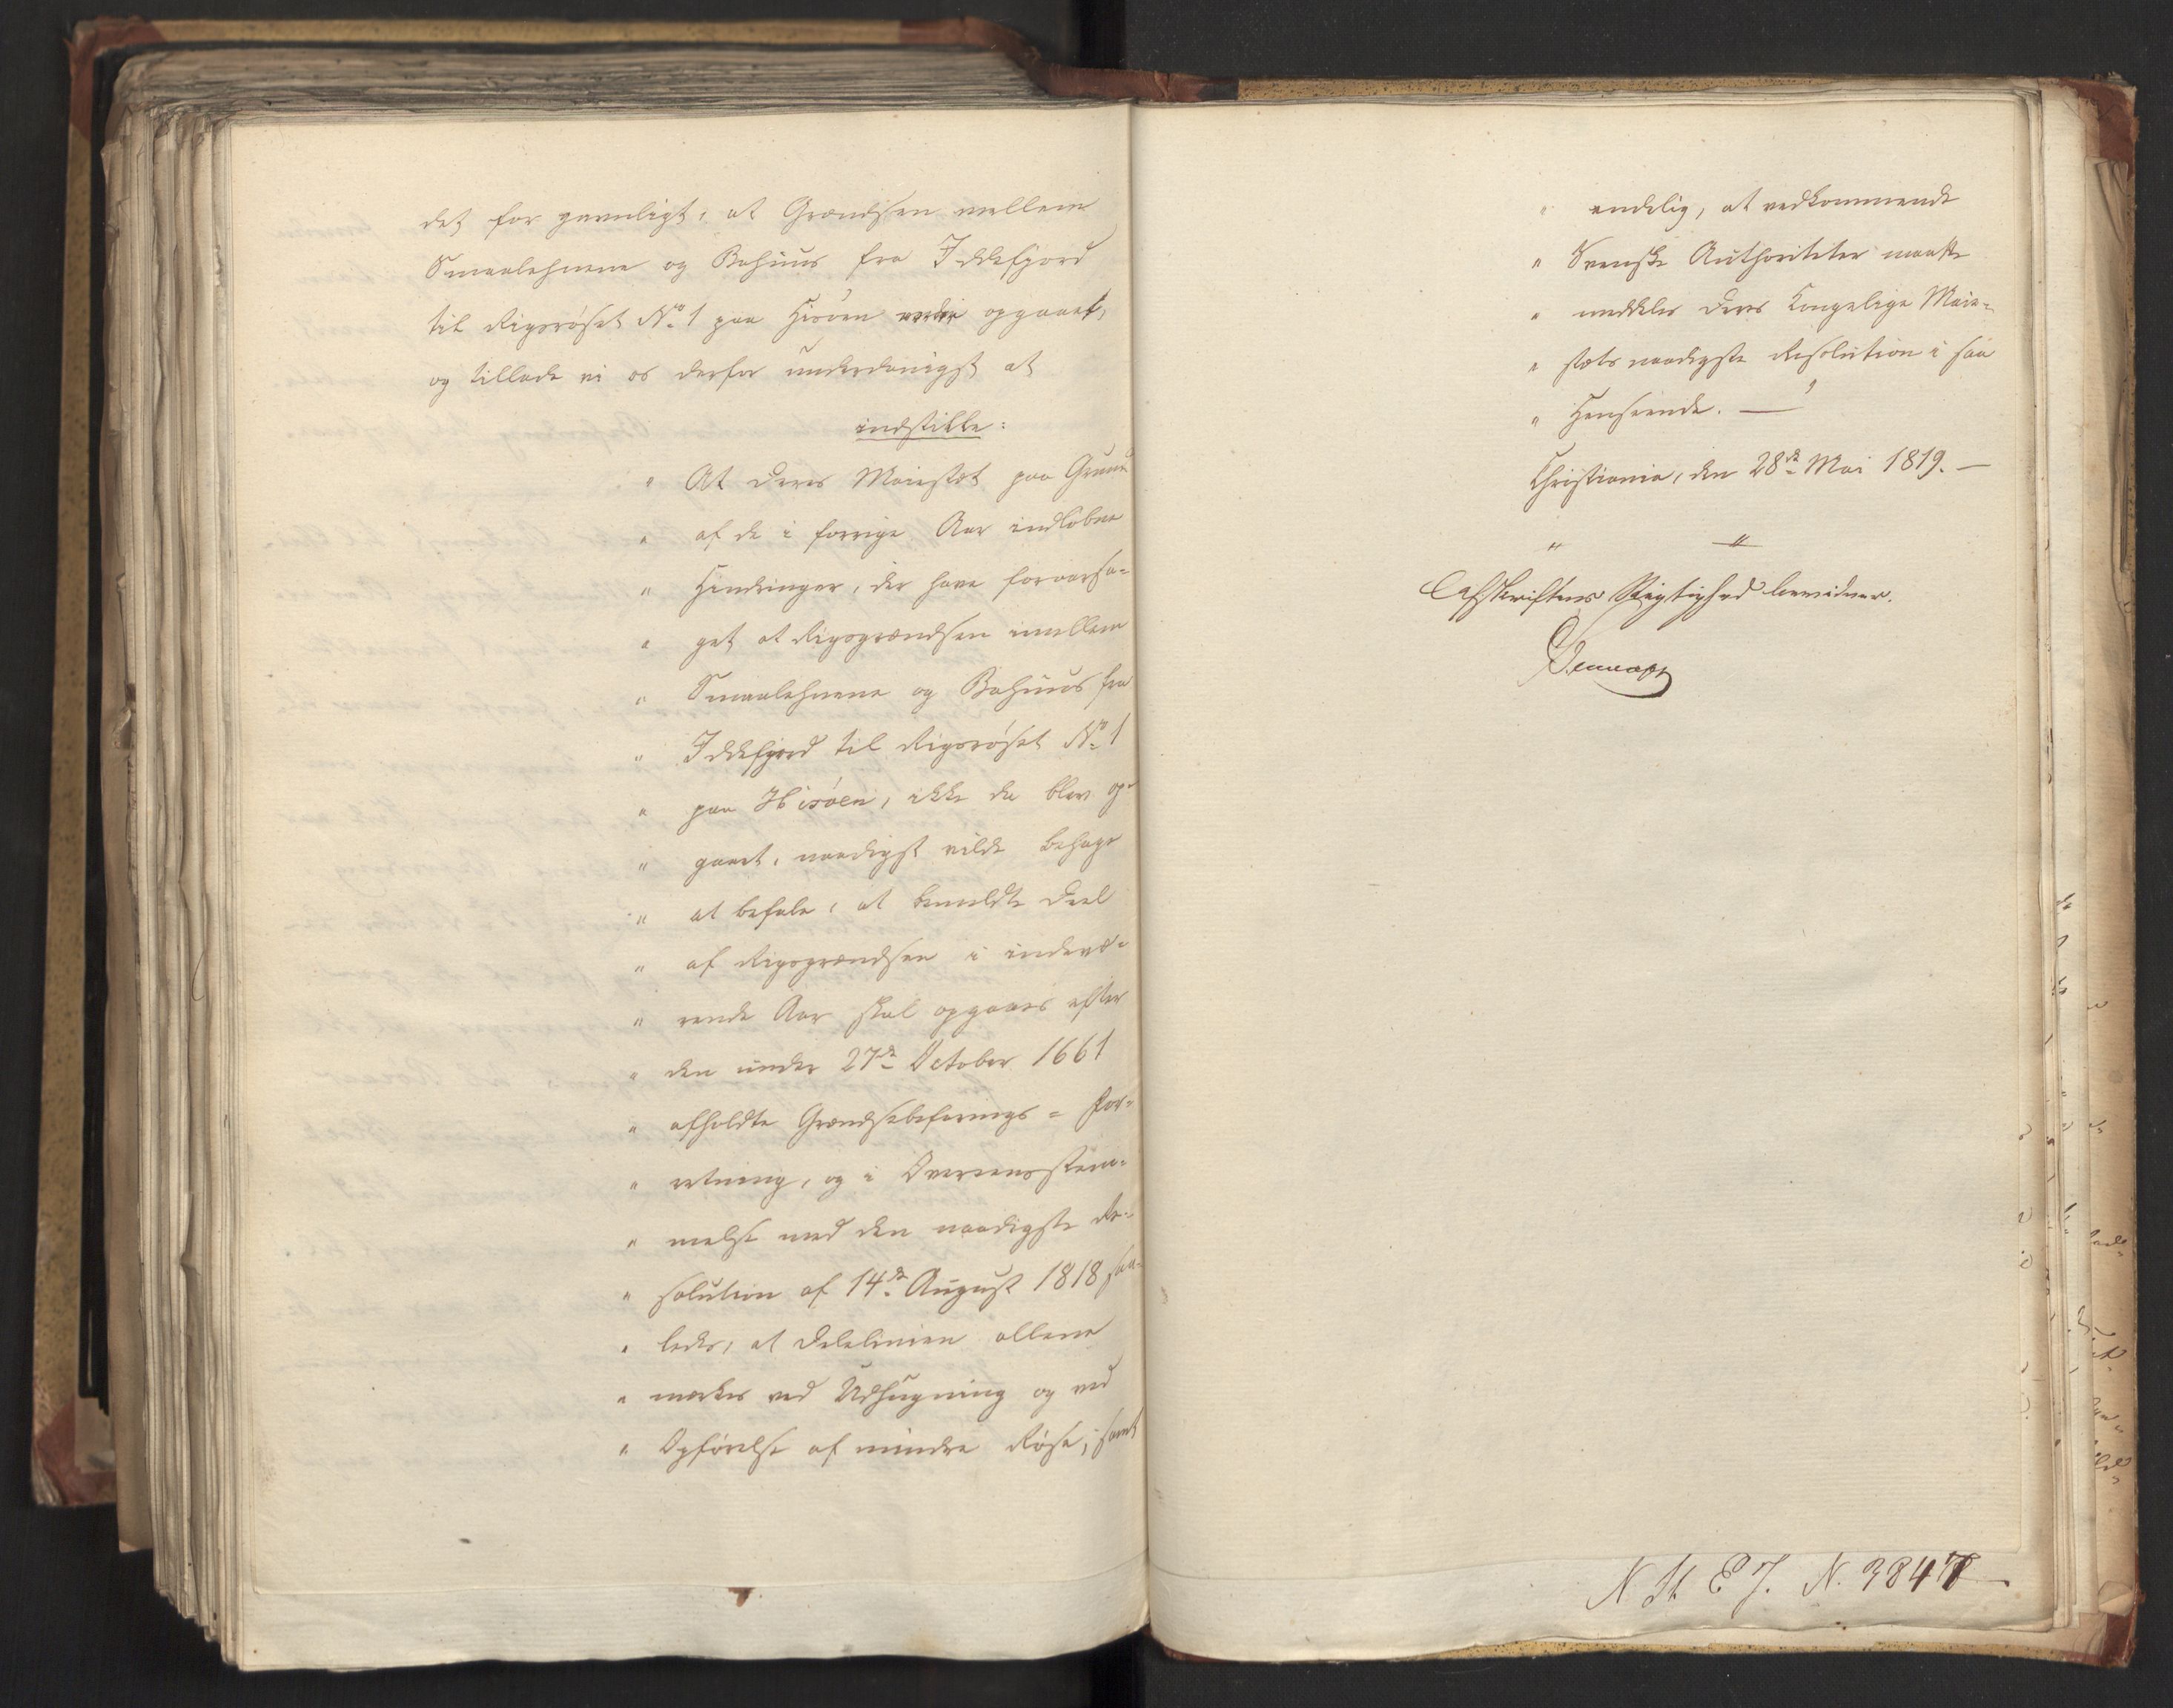 det for gavnligt, at Grændsen mellem
Smaalehnene og Bahuus fra Iddefjord
til Rigsrøset No 1 paa Hisöen vorder opgaaet,
og tillade vi os derfor underdanigst at
indstille:
" At Deres Maiestæt paa Grund
" af de i forrige Aar indløbne
" Hindringer, der have foraarsa-
" get at Rigsgrændsen imellem
" Smaalehnene og Bahuus fra
" Iddefjord til Rigsrøset No 1
" paa Hisöen, ikke da blev op-
" gaaet, naadigst vilde behage
" at befale, at bemeldte Deel
" af Rigsgrændsen i indevæ-
" rende Aar skal opgaaes efter
" den under 27de October 1661
" afholdte Grændsebefarings-For-
" retning, og i Overeensstem-
" melse med den naadigste Re-
" solution af 14de August 1818 saa-
" ledes, at Delelinien allene
" mærkes ved Udhugning og ved
" Opførelse af mindre Røse, samt
" endelig, at vedkommende
" Svenske Authoriteter maatte
" meddeles Deres Kongelige Maie-
" stæts naadigste Resolution i saa
" Henseende. —"
Christiania, den 28de Mai 1819. —
" "
Afskriftens Rigtighed bevidner.
N St E J. N. 3847